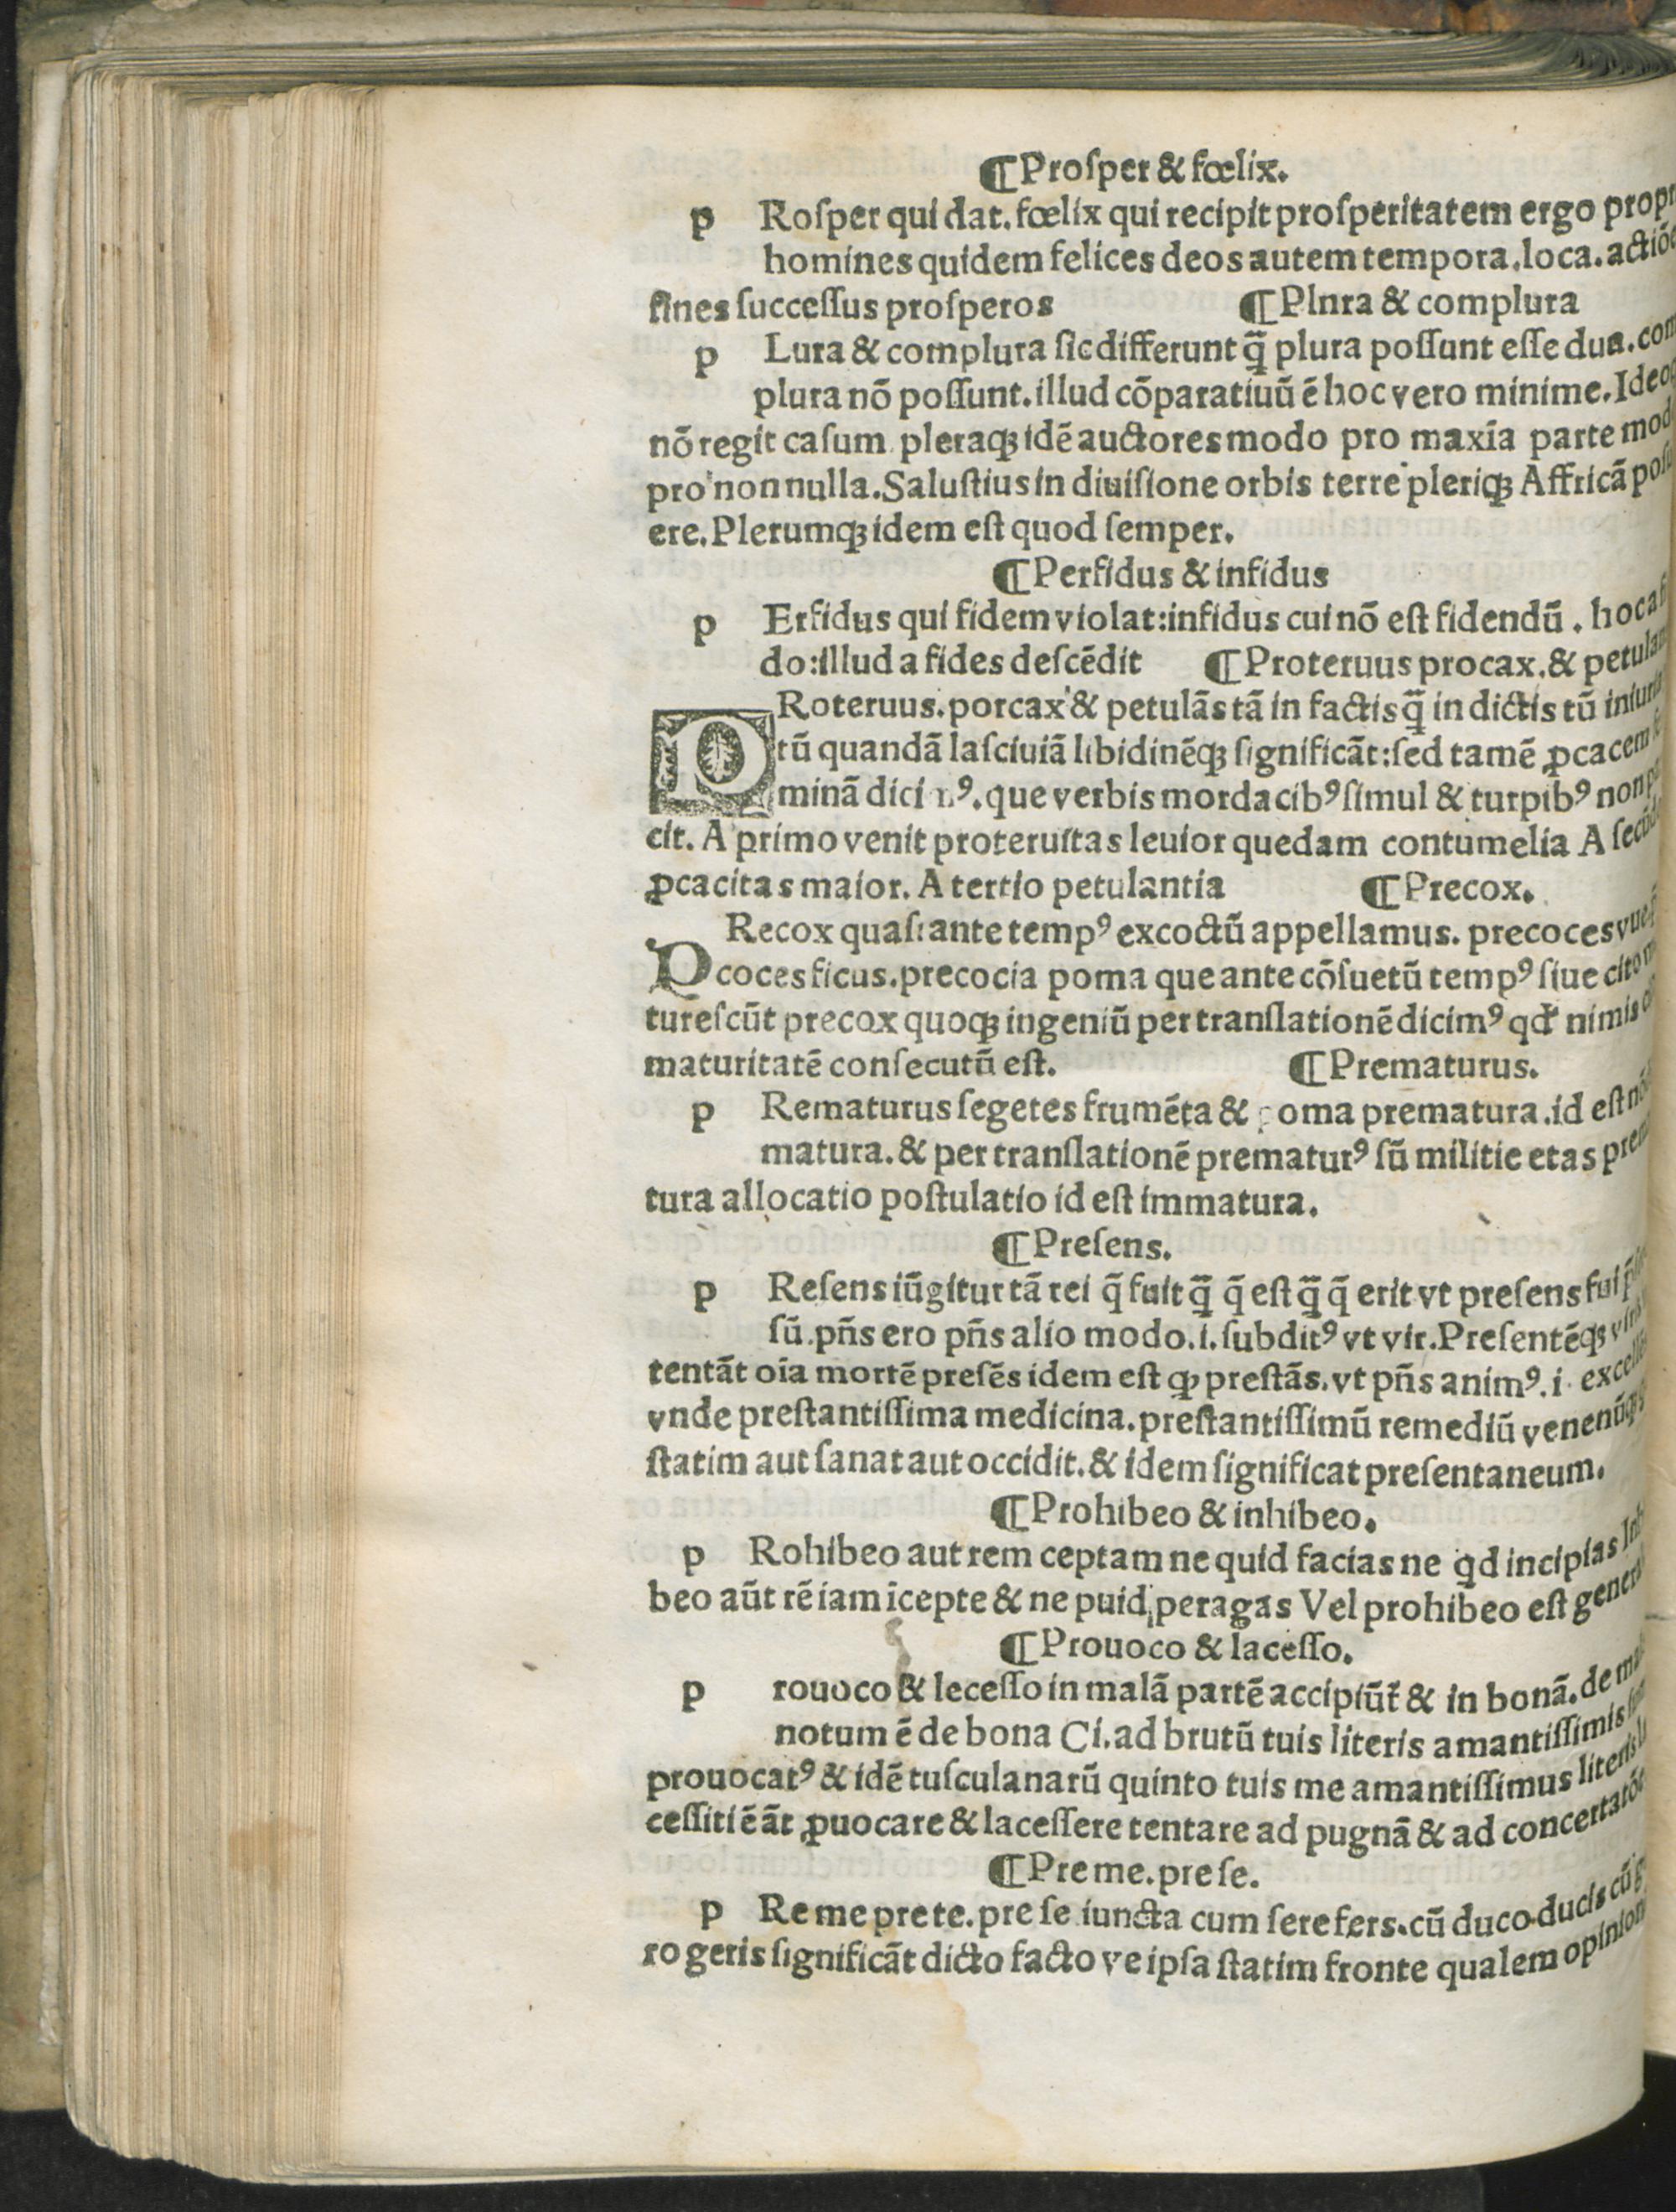 ¶Proſper & fœlix.
p Roſper qui dat. fœlix qui recipit proſperitatem ergo
homines quidem felices deos autem tempora. loca.
fines ſucceſſus proſperos ¶Plnra & complura
p Lura & complura ſic differunt q̃ plura poſſunt eſſe dua.
plura nõ poſſunt. illud cõparatiuũ ẽ hoc vero minime.
nõ regit caſum pleraqꝫ idẽ auctores modo pro maxĩa parte
pro nonnulla. Saluſtius in diuiſione orbis terre pleriqꝫ Affricã
ere. Plerumqꝫ idem eſt quod ſemper.
¶Perfidus & infidus
p Erfidus qui fidem violat: infidus cui nõ eſt fidendũ. hoc
do: illud a fides deſcẽdit ¶Proteruus procax. & petulan
PRoteruus. porcax & petulãs tã in factis q̃ in dictis tũ
tũ quandã laſciuiã libidinẽqꝫ ſignificãt: ſed tamẽ ꝓcacem
minã dici. que verbis mordacibꝰ ſimul & turpibꝰ non
cit. A primo venit proteruitas leuior quedam contumelia A
ꝓcacitas maior. A tertio petulantia ¶Precox.
PRecox quaſi ante tempꝰ excoctũ appellamus. precoces
coces ficus. precocia poma que ante cõſuetũ tempꝰ ſiue cito
tureſcũt precox quoqꝫ ingeniũ per tranſlationẽ dicimꝰ qđ nimis
maturitatẽ conſecutũ eſt. ¶Prematurus.
p Rematurus ſegetes frumẽta & poma prematura. id eſt
matura. & per tranſlationẽ prematurꝰ ſũ militie etas
tura allocatio poſtulatio id eſt immatura.
¶Preſens.
p Reſens iũgitur tã rei q̃ fuit q̃ q̃ eſt q̃ q̃ erit vt preſens fui
ſũ. pñs ero pñs alio modo. i. ſubditꝰ vt vir. Preſentẽqꝫ
tentãt oĩa mortẽ preſẽs idem eſt qꝫ preſtãs. vt pñs animꝰ. i.
vnde preſtantiſſima medicina. preſtantiſſimũ remediũ
ſtatim aut ſanat aut occidit. & idem ſignificat preſentaneum.
¶Prohibeo & inhibeo.
p Rohibeo aut rem ceptam ne quid facias ne qd incipias
beo aũt rẽ iam ĩcepte & ne puid peragas Vel prohibeo eſt
¶Prouoco & laceſſo.
p rouoco & leceſſo in malã partẽ accipiũt & in bonã. de
notum ẽ de bona Ci. ad brutũ tuis literis amantiſſimis
prouocatꝰ & idẽ tuſculanarũ quinto tuis me amantiſſimus literis
ceſſiti ẽãt ꝓuocare & laceſſere tentare ad pugnã & ad
¶Pre me. pre ſe.
p Re me pre te. pre ſe iuncta cum fero fers. cũ duco ducis cũ
ro geris ſignificãt dicto facto ve ipſa ſtatim fronte qualem